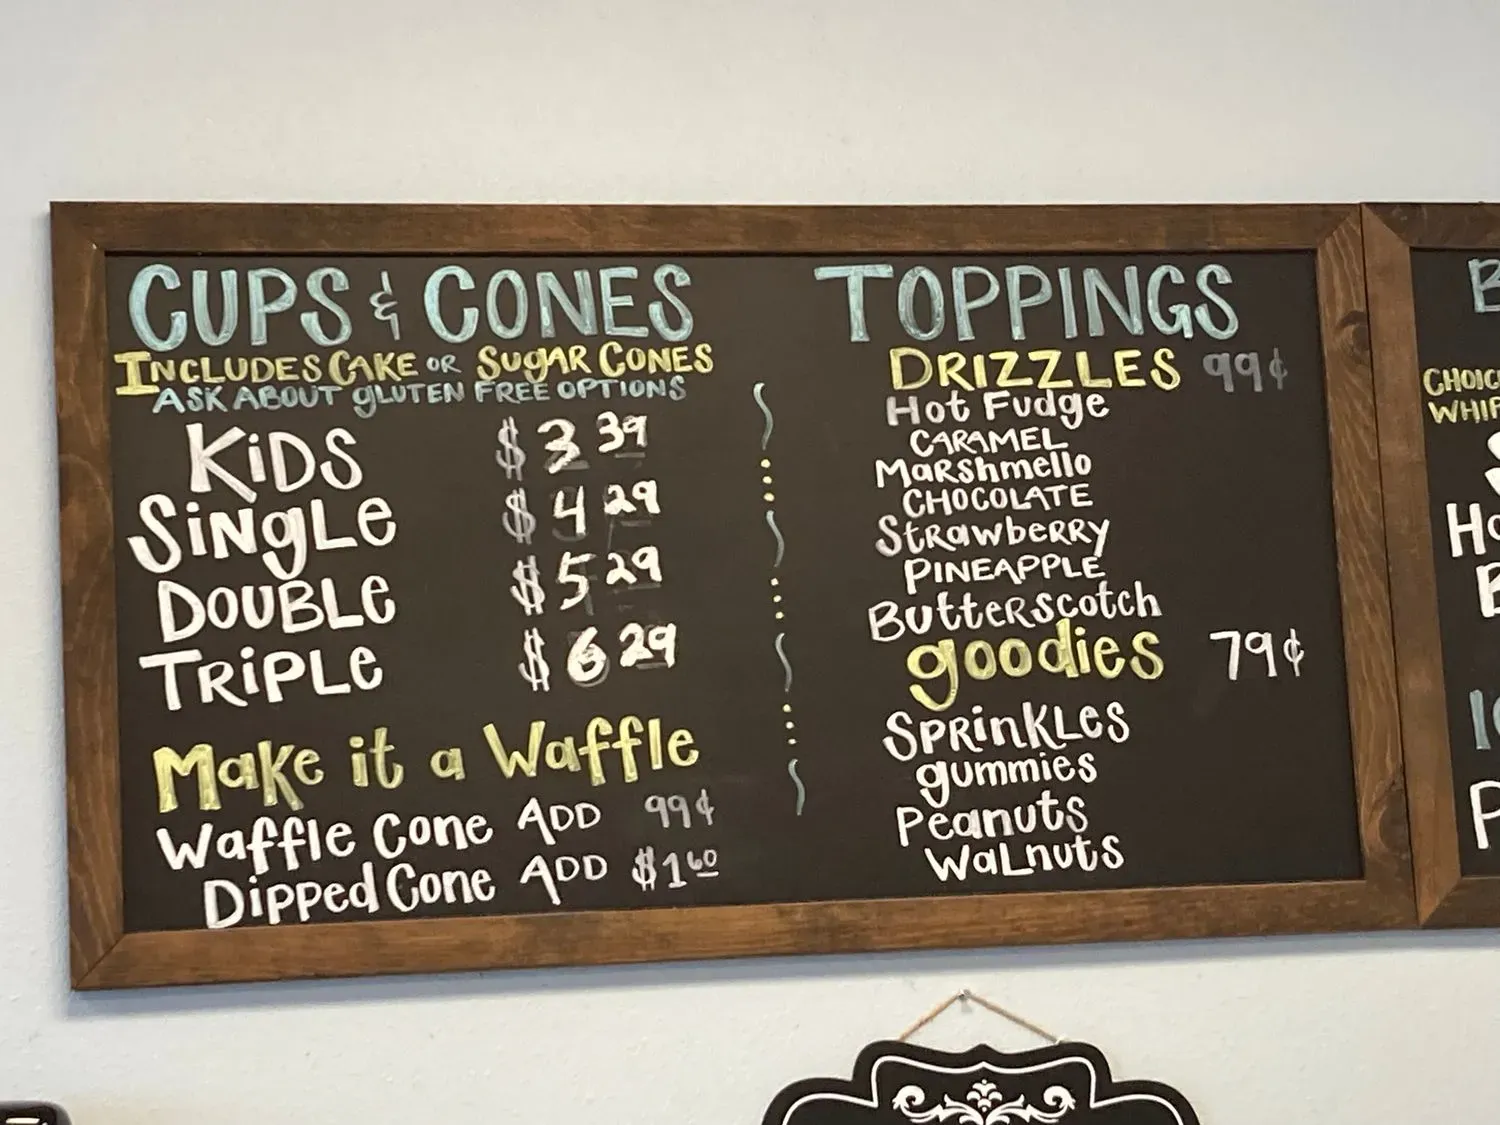 CUPS & CONES
INCLUDES CAKE OR SUGAR CONES
ASK ABOUT gLUTEN FREE OPTIONS
KiDS $3 39
SiNgLe $4 29
DOUBLe $5 29
TRiPLe $6 29
Make it a Waffle
Waffle Cone ADD 99¢
Dipped Cone ADD $1 60
TOPPINGS
DRIZZLES 99¢
Hot Fudge
CARAMEL
Marshmello
CHOCOLATE
Strawberry
PINEAPPLE
Butterscotch
goodies 79¢
SPRinKLes
gummies
Peanuts
WaLnuts